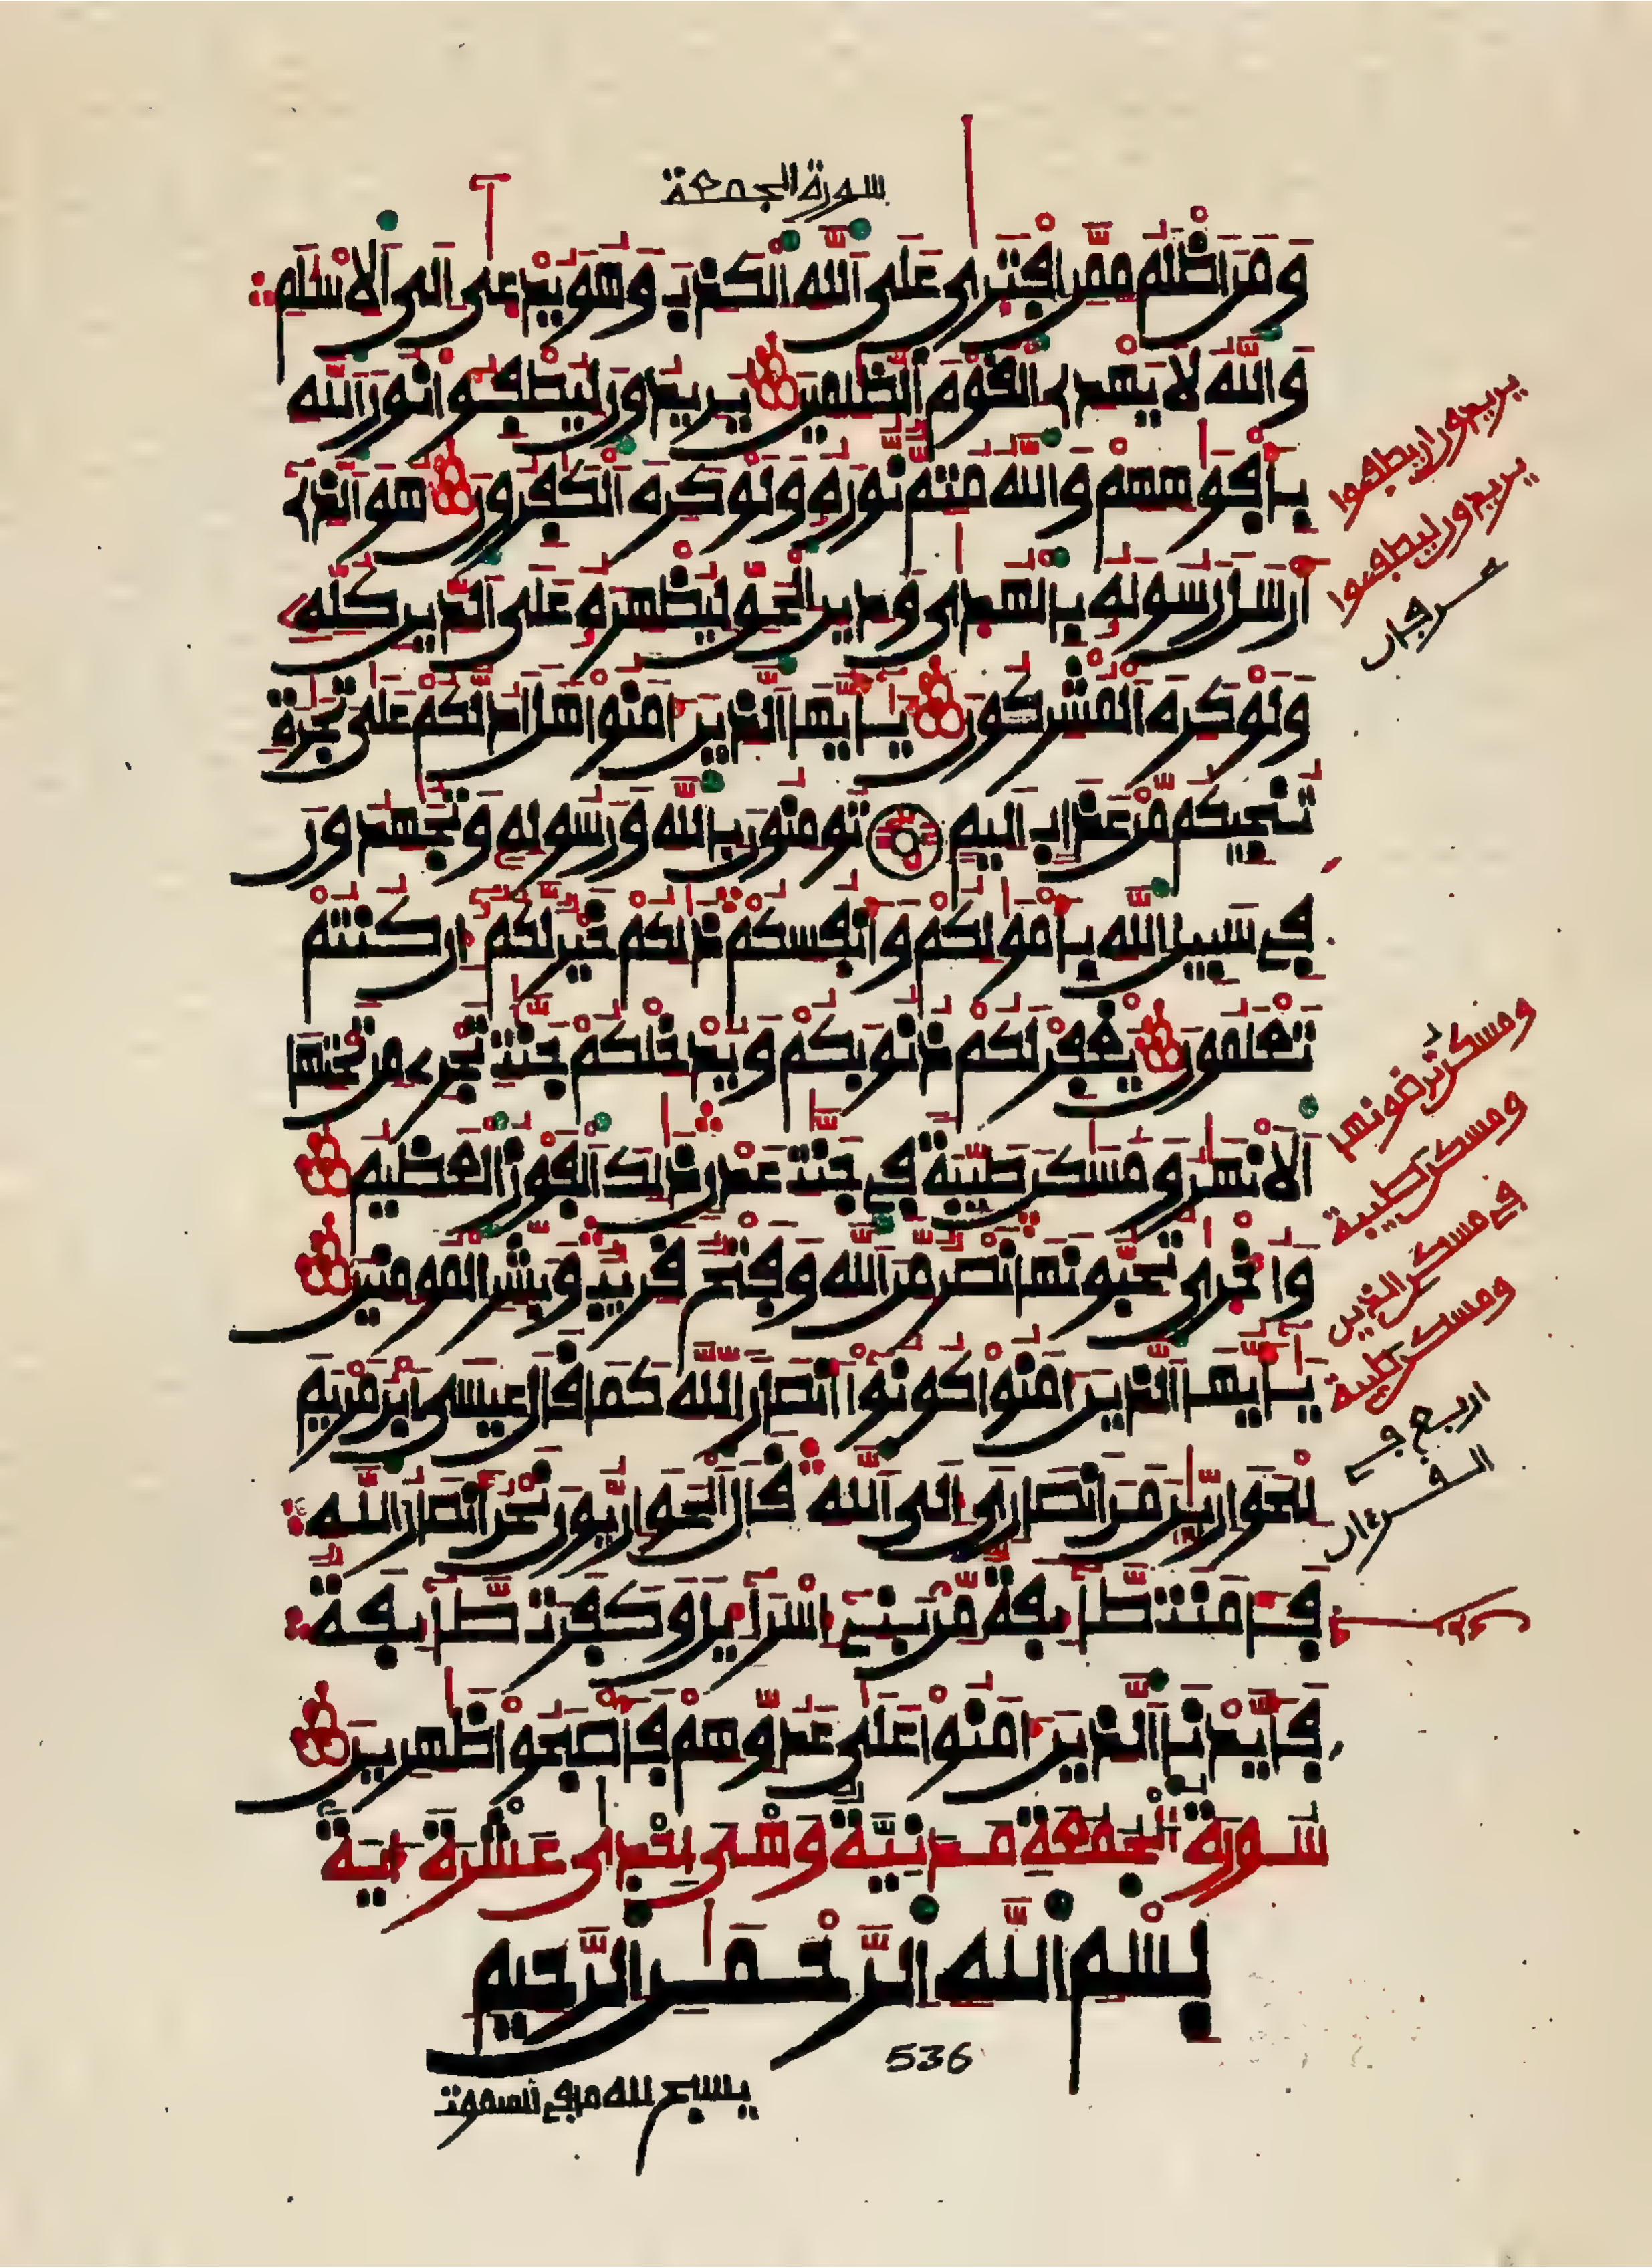 سورة الجمعة
وَمَنَ اَظْلَمُ مِمَّنِ اِفْتَرٜىٰ عَلَى اَللَّهِ اِلْكَذِبَ وَهُوَ يُدْعٜىٰٓ إِلَى اَلِاسْلَٰمِ
وَاللَّهُ لَا يَهْدِے اِلْقَوْمَ اَلظَّٰلِمِينَ يُرِيدُونَ لِيُطْفِـُٔوا نُورَ اَللَّهِ
بِأَفْوَٰهِهِمْ وَاللَّهُ مُتِمٌّ نُّورَهُۥ وَلَوْ كَرِهَ اَلْكَٰفِرُونَ هُوَ اَلذِےٓ
أَرْسَلَ رَسُولَهُۥ بِالْهُدٜىٰ وَدِينِ اِلْحَقِّ لِيُظْهِرَهُۥ عَلَى اَلدِّينِ كُلِّهِۦ
وَلَوْ كَرِهَ اَلْمُشْرِكُونَ يَٰٓأَيُّهَا اَلذِينَ ءَامَنُوا هَلَ اَدُلُّكُمْ عَلَىٰ تِجَٰرَةٖ
تُنجِيكُم مِّنْ عَذَابٍ اَلِيمٖ تُومِنُونَ بِاللَّهِ وَرَسُولِهِۦ وَتُجَٰهِدُونَ
فِے سَبِيلِ اِللَّهِ بِأَمْوَٰلِكُمْ وَأَنفُسِكُمْ ذَٰلِكُمْ خَيْرٞ لَّكُمُۥٓ إِن كُنتُمْ
تَعْلَمُونَ يَغْفِرْ لَكُمْ ذُنُوبَكُمْ وَيُدْخِلْكُمْ جَنَّٰتٖ تَجْرِے مِن تَحْتِهَا
اَلَانْهَٰرُ وَمَسَٰكِنَ طَيِّبَةٗ فِے جَنَّٰتِ عَدْنٖ ذَٰلِكَ اَلْفَوْزُ اَلْعَظِيمُ
وَأُخْرٜىٰ تُحِبُّونَهَا نَصْرٞ مِّنَ اَللَّهِ وَفَتْحٞ قَرِيبٞ وَبَشِّرِ اِلْمُومِنِينَ
يَٰٓأَيُّهَا اَلذِينَ ءَامَنُوا كُونُوٓا أَنصَاراٗ لِّلهِ كَمَا قَالَ عِيسَى اَبْنُ مَرْيَمَ
لِلْحَوَارِيِّـۧنَ مَنَ اَنصَارِيَ إِلَى اَللَّهِ قَالَ اَلْحَوَارِيُّونَ نَحْنُ أَنصَارُ اُللَّهِ
فَـَٔامَنَت طَّآئِفَةٞ مِّنۢ بَنِےٓ إِسْرَآءِيلَ وَكَفَرَت طَّآئِفَةٞ
فَأَيَّدْنَا اَلذِينَ ءَامَنُوا عَلَىٰ عَدُوِّهِمْ فَأَصْبَحُوا ظَٰهِرِينَ
سُورَةُ الْجُمُعَةِ مَدَنِيَّةٌ وَهْىَ إِحْدٜىٰ عَشْرَةَ ءَايَةً
بِسْمِ اِللَّهِ اِلرَّحْمَٰنِ اِلرَّحِيمِ
536
يسبح لله ما في السموت
يريدون ان يطفـوا
يريدون ليطفـوا
ومسكن ترضونها
ومسكن طيبة
في مسكن الذين
ومسكن طيبة
اربع في
القرءان